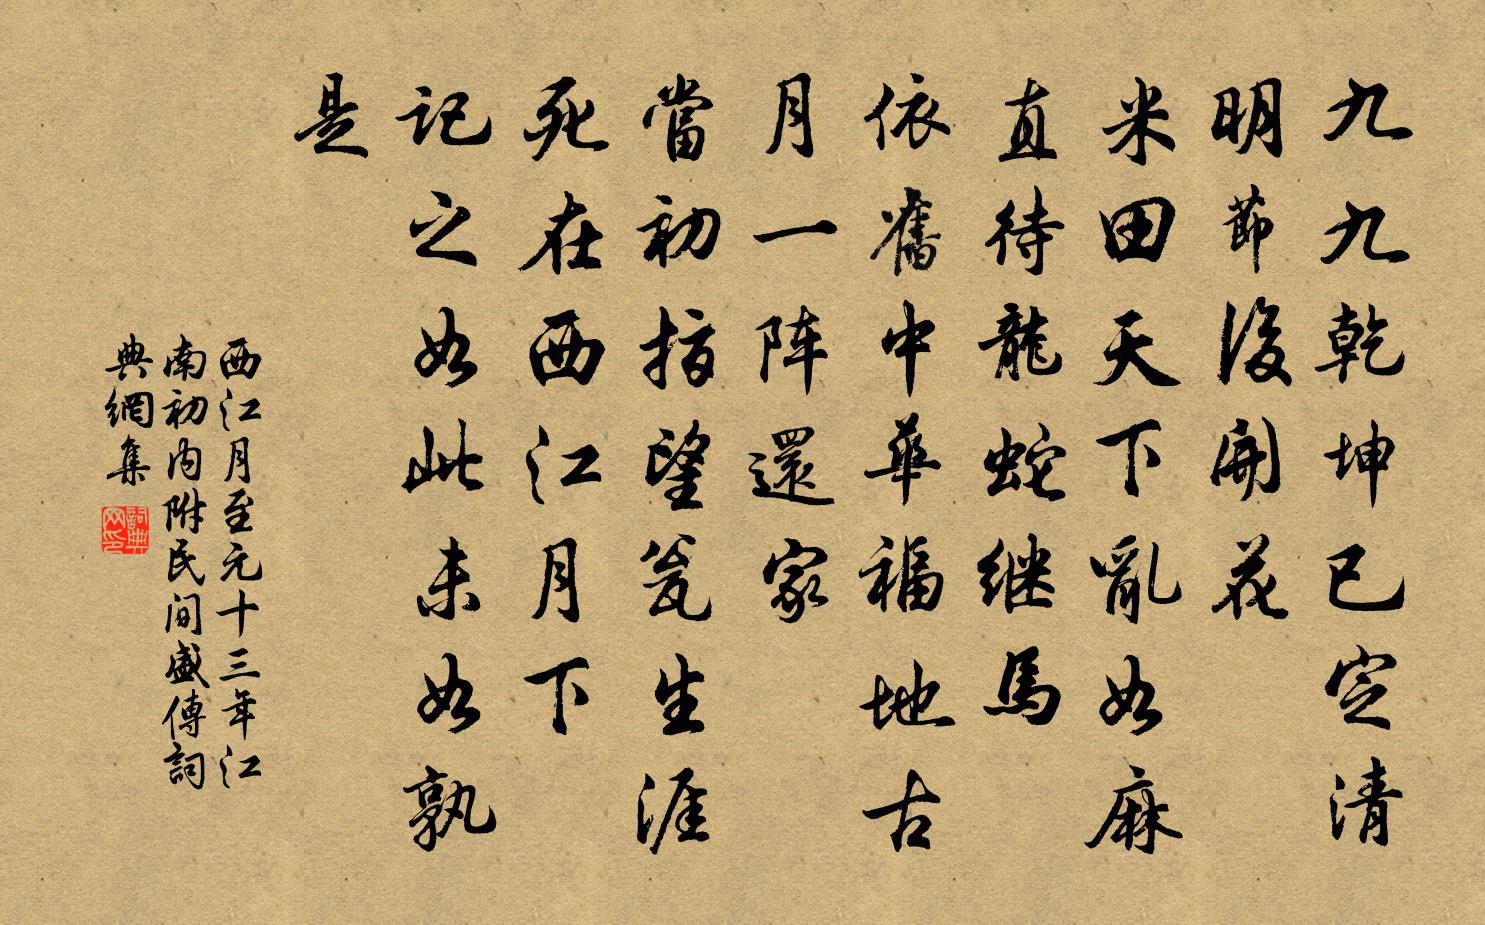 九九乾坤已定清
明節後開花
米田天下亂如麻
直待龍蛇继馬
依舊中華福地古
月一阵還家
當初指望瓮生涯
死在西江月下
記之如此未如孰
是
西江月至元十三年江
南初内附民间盛傳詞
典網集
詞典网印